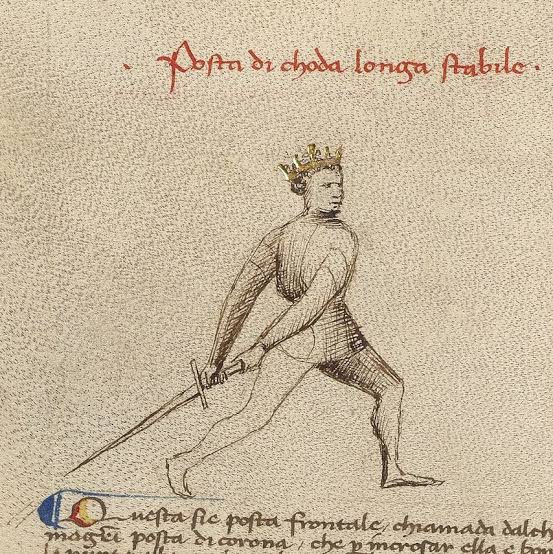 · Posta di choda longa stabile ·
Questa sie posta frontale, chiamada dalch
magiei posta di corona, che per incrosar ella e bo